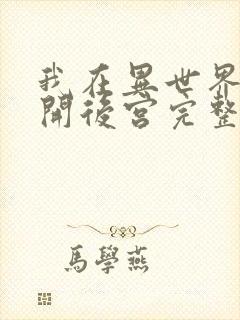 我在異世界
開後宮完整
馬學燕